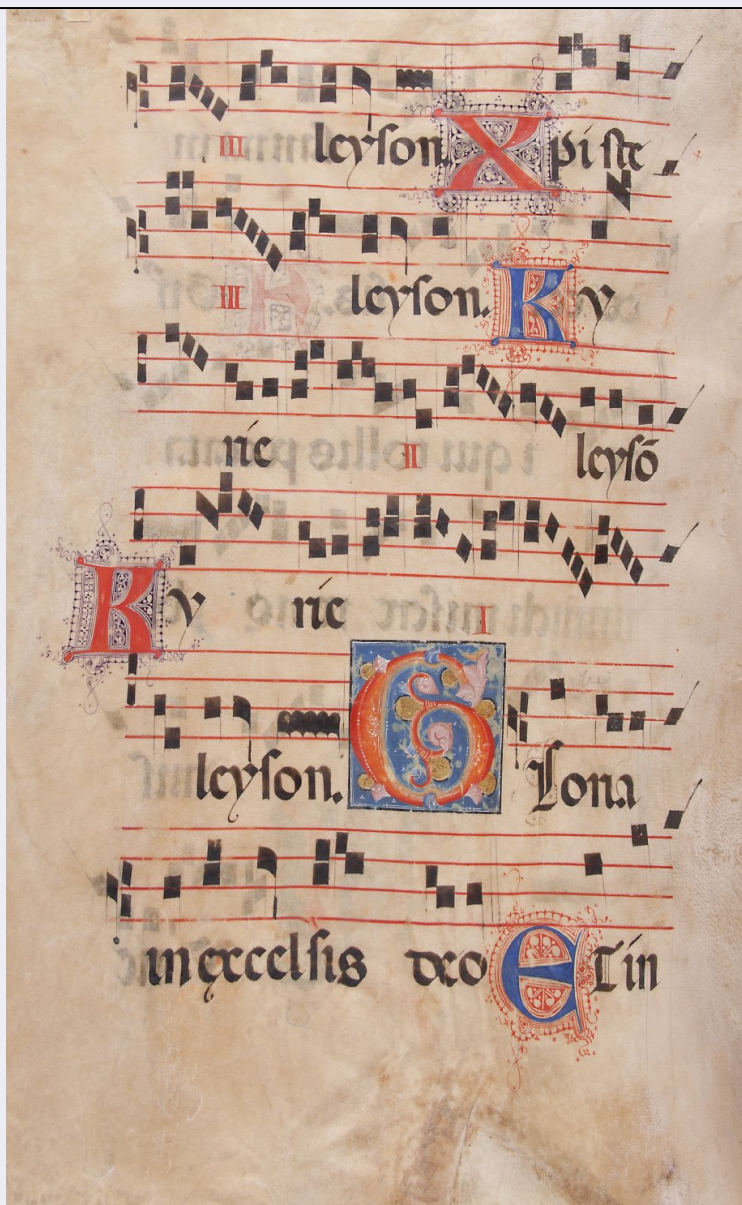 III leyson Xpiste
III leyson. Ky
rie II leysō
Ky rie I
leyson. Gloria
in excelsis deo Et in